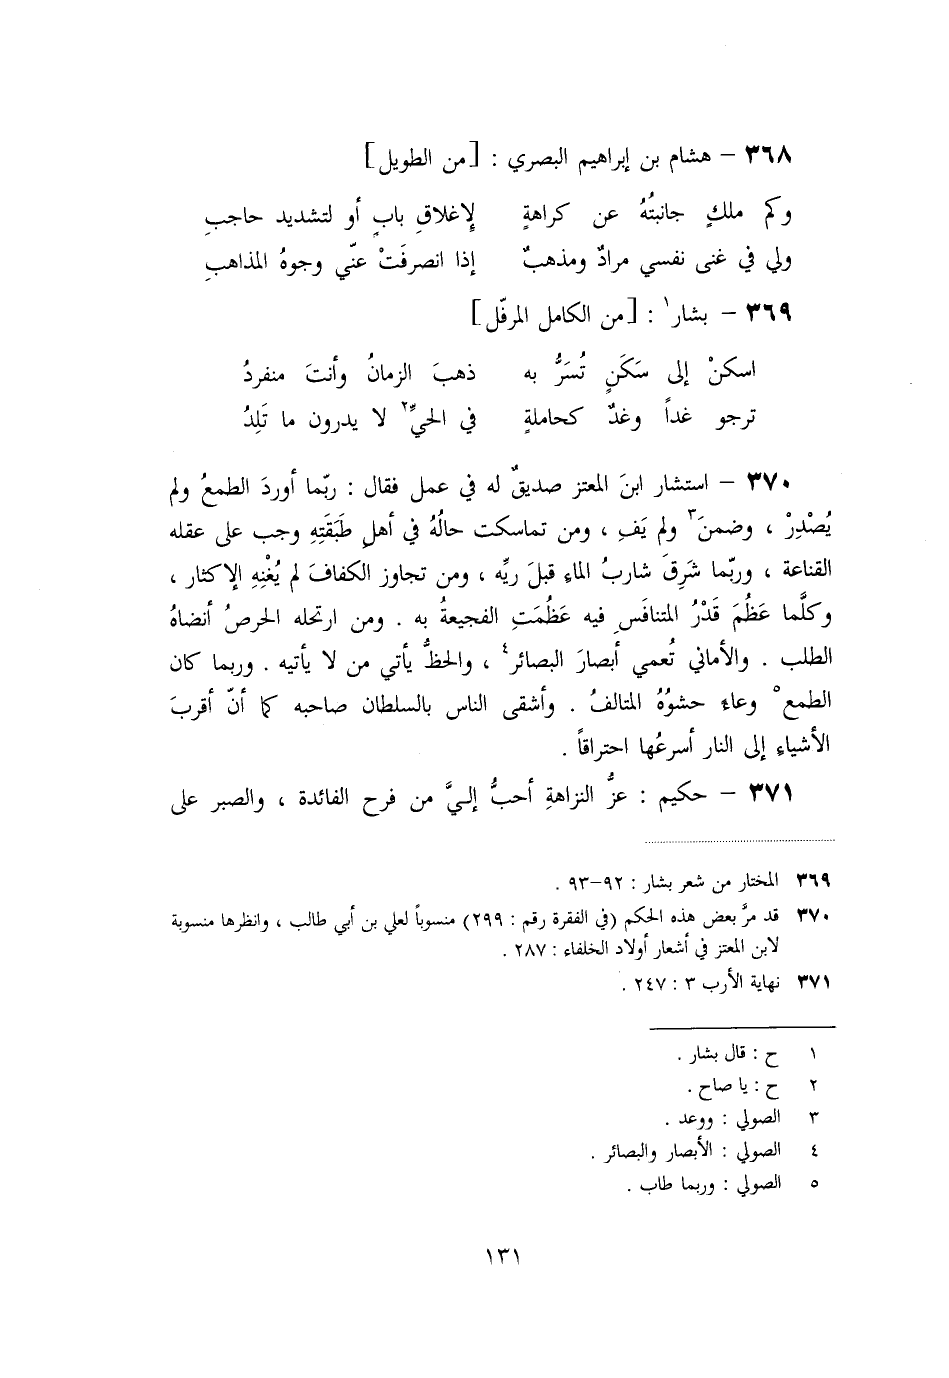 ٣٦٨ – هشام بن إبراهيم البصري : [من الطويل]
وكم ملكٍ جانبتُهُ عن كراهةٍ لإغلاقِ بابٍ أو لتشديد حاجبِ
ولي في غنى نفسي مرادٌ ومذهبٌ إذا انصرفَتْ عنّي وجوهُ المذاهبِ
٣٦٩ – بشار١ : [من الكامل المرفّل]
اسكنْ إلى سَكَنٍ تُسَرُّ به ذهبَ الزمانُ وأنتَ منفردُ
ترجو غداً وغدٌ كحاملةٍ في الحيِّ٢ لا يدرون ما تَلِدُ
٣٧٠ – استشار ابنَ المعتز صديقٌ له في عمل فقال : ربّما أوردَ الطمعُ ولم
يُصْدِرْ ، وضمنَ٣ ولم يَفِ ، ومن تماسكت حالُهُ في أهلِ طَبَقَتِهِ وجب على عقله
القناعة ، وربّما شَرِقَ شاربُ الماءِ قبلَ ريِّه ، ومن تجاوز الكفافَ لم يُغْنِهِ الإكثار ،
وكلَّما عَظُمَ قَدْرُ المتنافَسِ فيه عَظُمَتِ الفجيعةُ به . ومن ارتحله الحرصُ أنضاهُ
الطلب . والأماني تُعمي أبصارَ البصائر٤ ، والحظُّ يأتي من لا يأتيه . وربما كان
الطمع٥ وعاءً حشوُهُ المتالفُ . وأشقى الناس بالسلطان صاحبه كما أنّ أقربَ
الأشياءِ إلى النار أسرعُها احتراقاً .
٣٧١ – حكيم : عزُّ النزاهةِ أحبُّ إليَّ من فرح الفائدة ، والصبر على
٣٦٩ المختار من شعر بشار : ٩٢–٩٣ .
٣٧٠ قد مرَّ بعض هذه الحكم (في الفقرة رقم : ٢٩٩) منسوباً لعلي بن أبي طالب ، وانظرها منسوبة
لابن المعتز في أشعار أولاد الخلفاء : ٢٨٧ .
٣٧١ نهاية الأرب ٣ : ٢٤٧ .
١ ح : قال بشار .
٢ ح : يا صاح .
٣ الصولي : ووعد .
٤ الصولي : الأبصار والبصائر .
٥ الصولي : وربما طاب .
١٣١